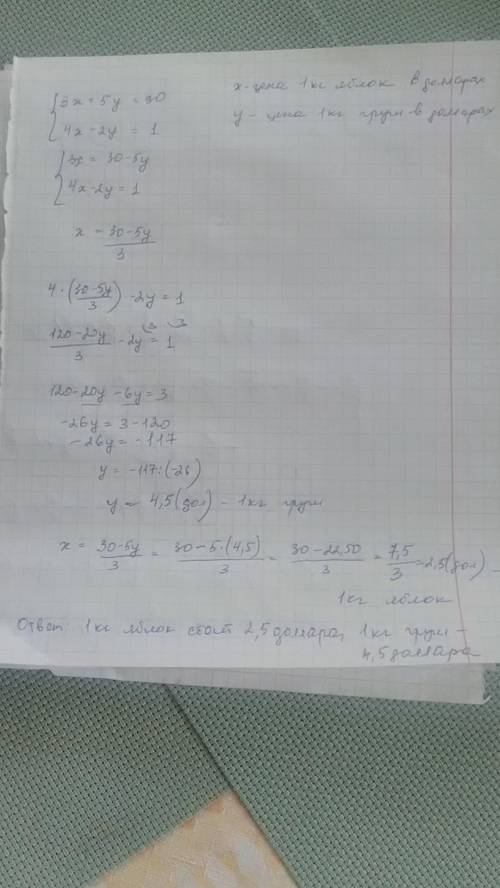 x - цена 1 кг яблок в долларах
{ 3x + 5y = 30
y - цена 1 кг груш в долларах
4x - 2y = 1
{ 3x = 30 - 5y
4x - 2y = 1
x = (30 - 5y)/3
4 · (30 - 5y)/3 - 2y = 1
(120 - 20y)/3 - 2y = 1
120 - 20y - 6y = 3
-26y = 3 - 120
-26y = -117
y = -117 : (-26)
y = 4,5 (дол) - 1 кг груш
x = (30 - 5y)/3 = (30 - 5 · (4,5))/3 = (30 - 22,50)/3 = 7,5/3 = 2,5 (дол) -
1 кг яблок
Ответ: 1 кг яблок стоит 2,5 доллара, 1 кг груш -
4,5 доллара